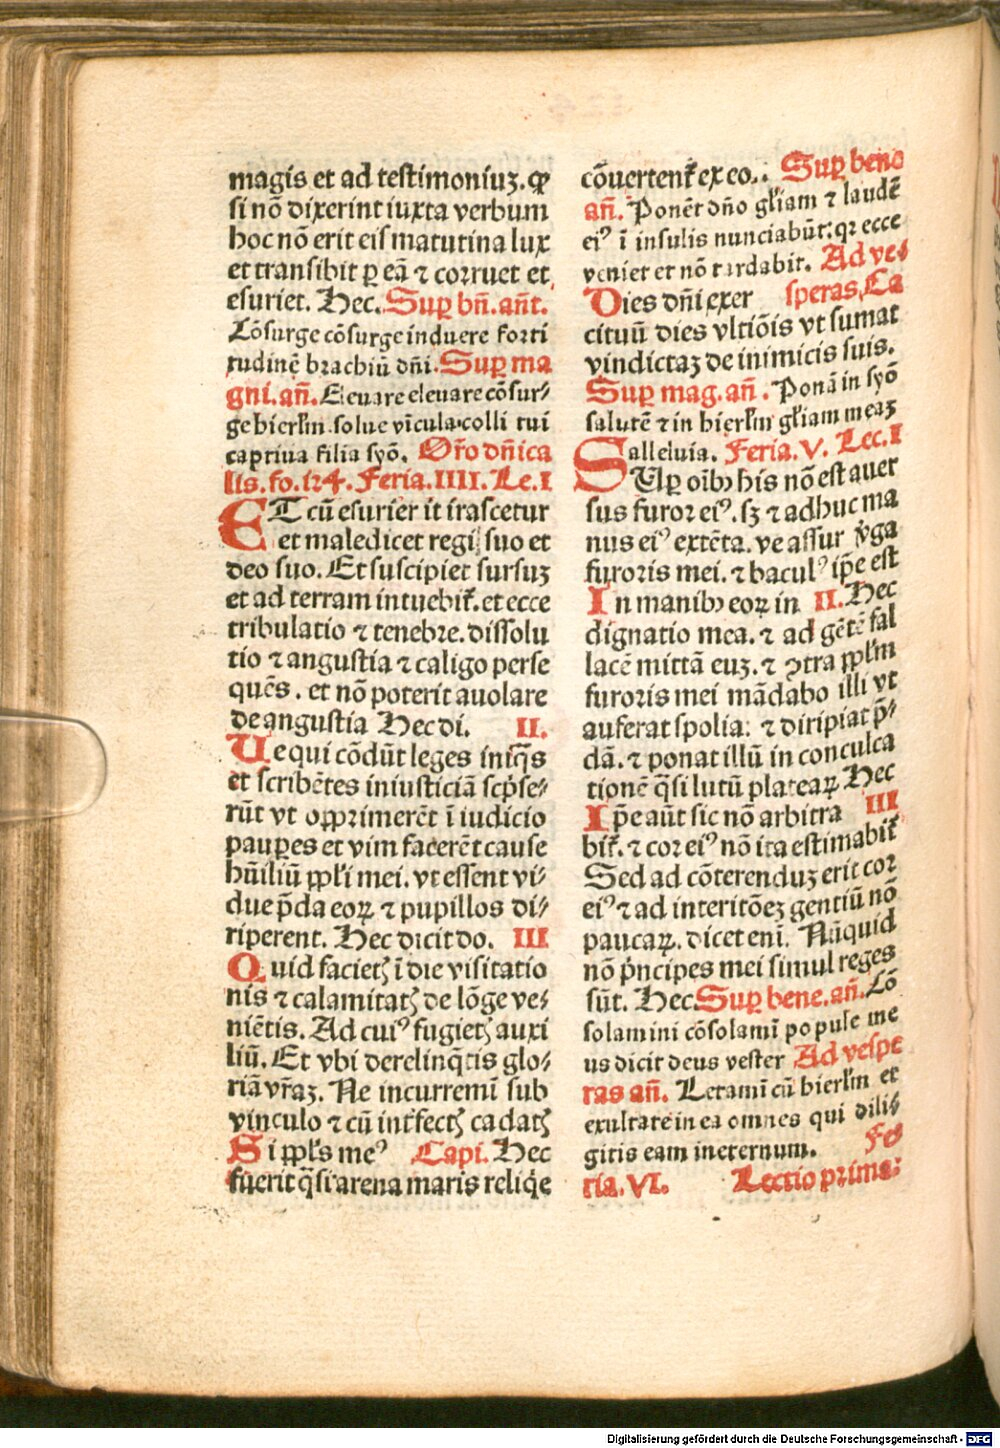 magis et ad testimoniuʒ. ꝙ
si nō dixerint iuxta verbum
hoc nō erit eis matutina lux
et transibit ꝑ eā ⁊ corruet et
esuriet. Hec. Suꝑ bn̄. an̄t.
Cōsurge cōsurge induere forti
tudinē brachiū dn̄i. Suꝑ ma
gni. an̄. Eleuare eleuare cōsur⸗
ge hierlm̄ solue vīcula colli tui
captiua filia syō. Or̄o dn̄ica
lis. fo. 124. Feria. IIII. Le. I
ET cū esurierit irascetur
et maledicet regi suo et
deo suo. Et suscipiet sursuʒ
et ad terram intuebit̄. et ecce
tribulatio ⁊ tenebre. dissolu
tio ⁊ angustia ⁊ caligo perse
quēs. et nō poterit auolare
de angustia Hec di. II.
Ue qui cōdūt leges iniq̄s
et scribētes iniusticiā scp̄se⸗
rūt vt opprimerēt ī iudicio
pauꝑes et vim facerēt cause
hūiliū ppl̄i mei. vt essent vi⸗
due p̄da eoꝝ ⁊ pupillos di⸗
riperent. Hec dicit do. III
Quid facietꝭ ī die visitatio
nis ⁊ calamitatꝭ de lōge ve⸗
niētis. Ad cuiꝰ fugietꝭ auxi
liū. Et vbi derelinq̄tis glo⸗
riā vr̄aʒ. Ne incurremī sub
vinculo ⁊ cū int̄fectꝭ cadatꝭ
Si ppl̄s meꝰ Capi. Hec
fuerit q̄si arena maris reliq̄e
cōuertent̄ ex eo.. Suꝑ bene
an̄. Ponēt dn̄o gl̄iam ⁊ laudē
eiꝰ ī insulis nunciabūt: qꝛ ecce
veniet et nō tardabit. Ad ve⸗
Dies dn̄i exer speras, Ca
cituū dies vltiōis vt sumat
vindictaʒ de inimicis suis.
Suꝑ mag. an̄. Ponā in syō
salutē ⁊ in hierlm̄ gl̄iam meaʒ
alleluia. Feria. V. Lec. I
SUꝑ oībꝫ his nō est auer
sus furor eiꝰ. sʒ ⁊ adhuc ma
nus eiꝰ extēta. ve assur v̄ga
furoris mei. ⁊ baculꝰ ip̄e est
In manibꝫ eoꝝ in II. Hec
dignatio mea. ⁊ ad gētē fal
lacē mittā euʒ. ⁊ ꝯtra ppl̄m
furoris mei mādabo illi vt
auferat spolia: ⁊ diripiat p̄⸗
dā. ⁊ ponat illū in conculca
tionē q̄si lutū plateaꝝ Hec
Ip̄e aūt sic nō arbitra III
bit̄. ⁊ cor eiꝰ nō ita estimabit̄
Sed ad cōterenduʒ erit cor
eiꝰ ⁊ ad interitōeʒ gentiū nō
paucaꝝ. dicet enī. Nūquid
nō p̄ncipes mei simul reges
sūt. Hec Suꝑ bene. an̄. Cō
solamini cōsolamī popule me
us dicit deus vester Ad vespe
ras an̄. Letamī cū hierlm̄ et
exultate in ea omnes qui dili⸗
gitis eam ineternum. Fe
ria. VI. Lectio prima:
Digitalisierung gefördert durch die Deutsche Forschungsgemeinschaft - DFG